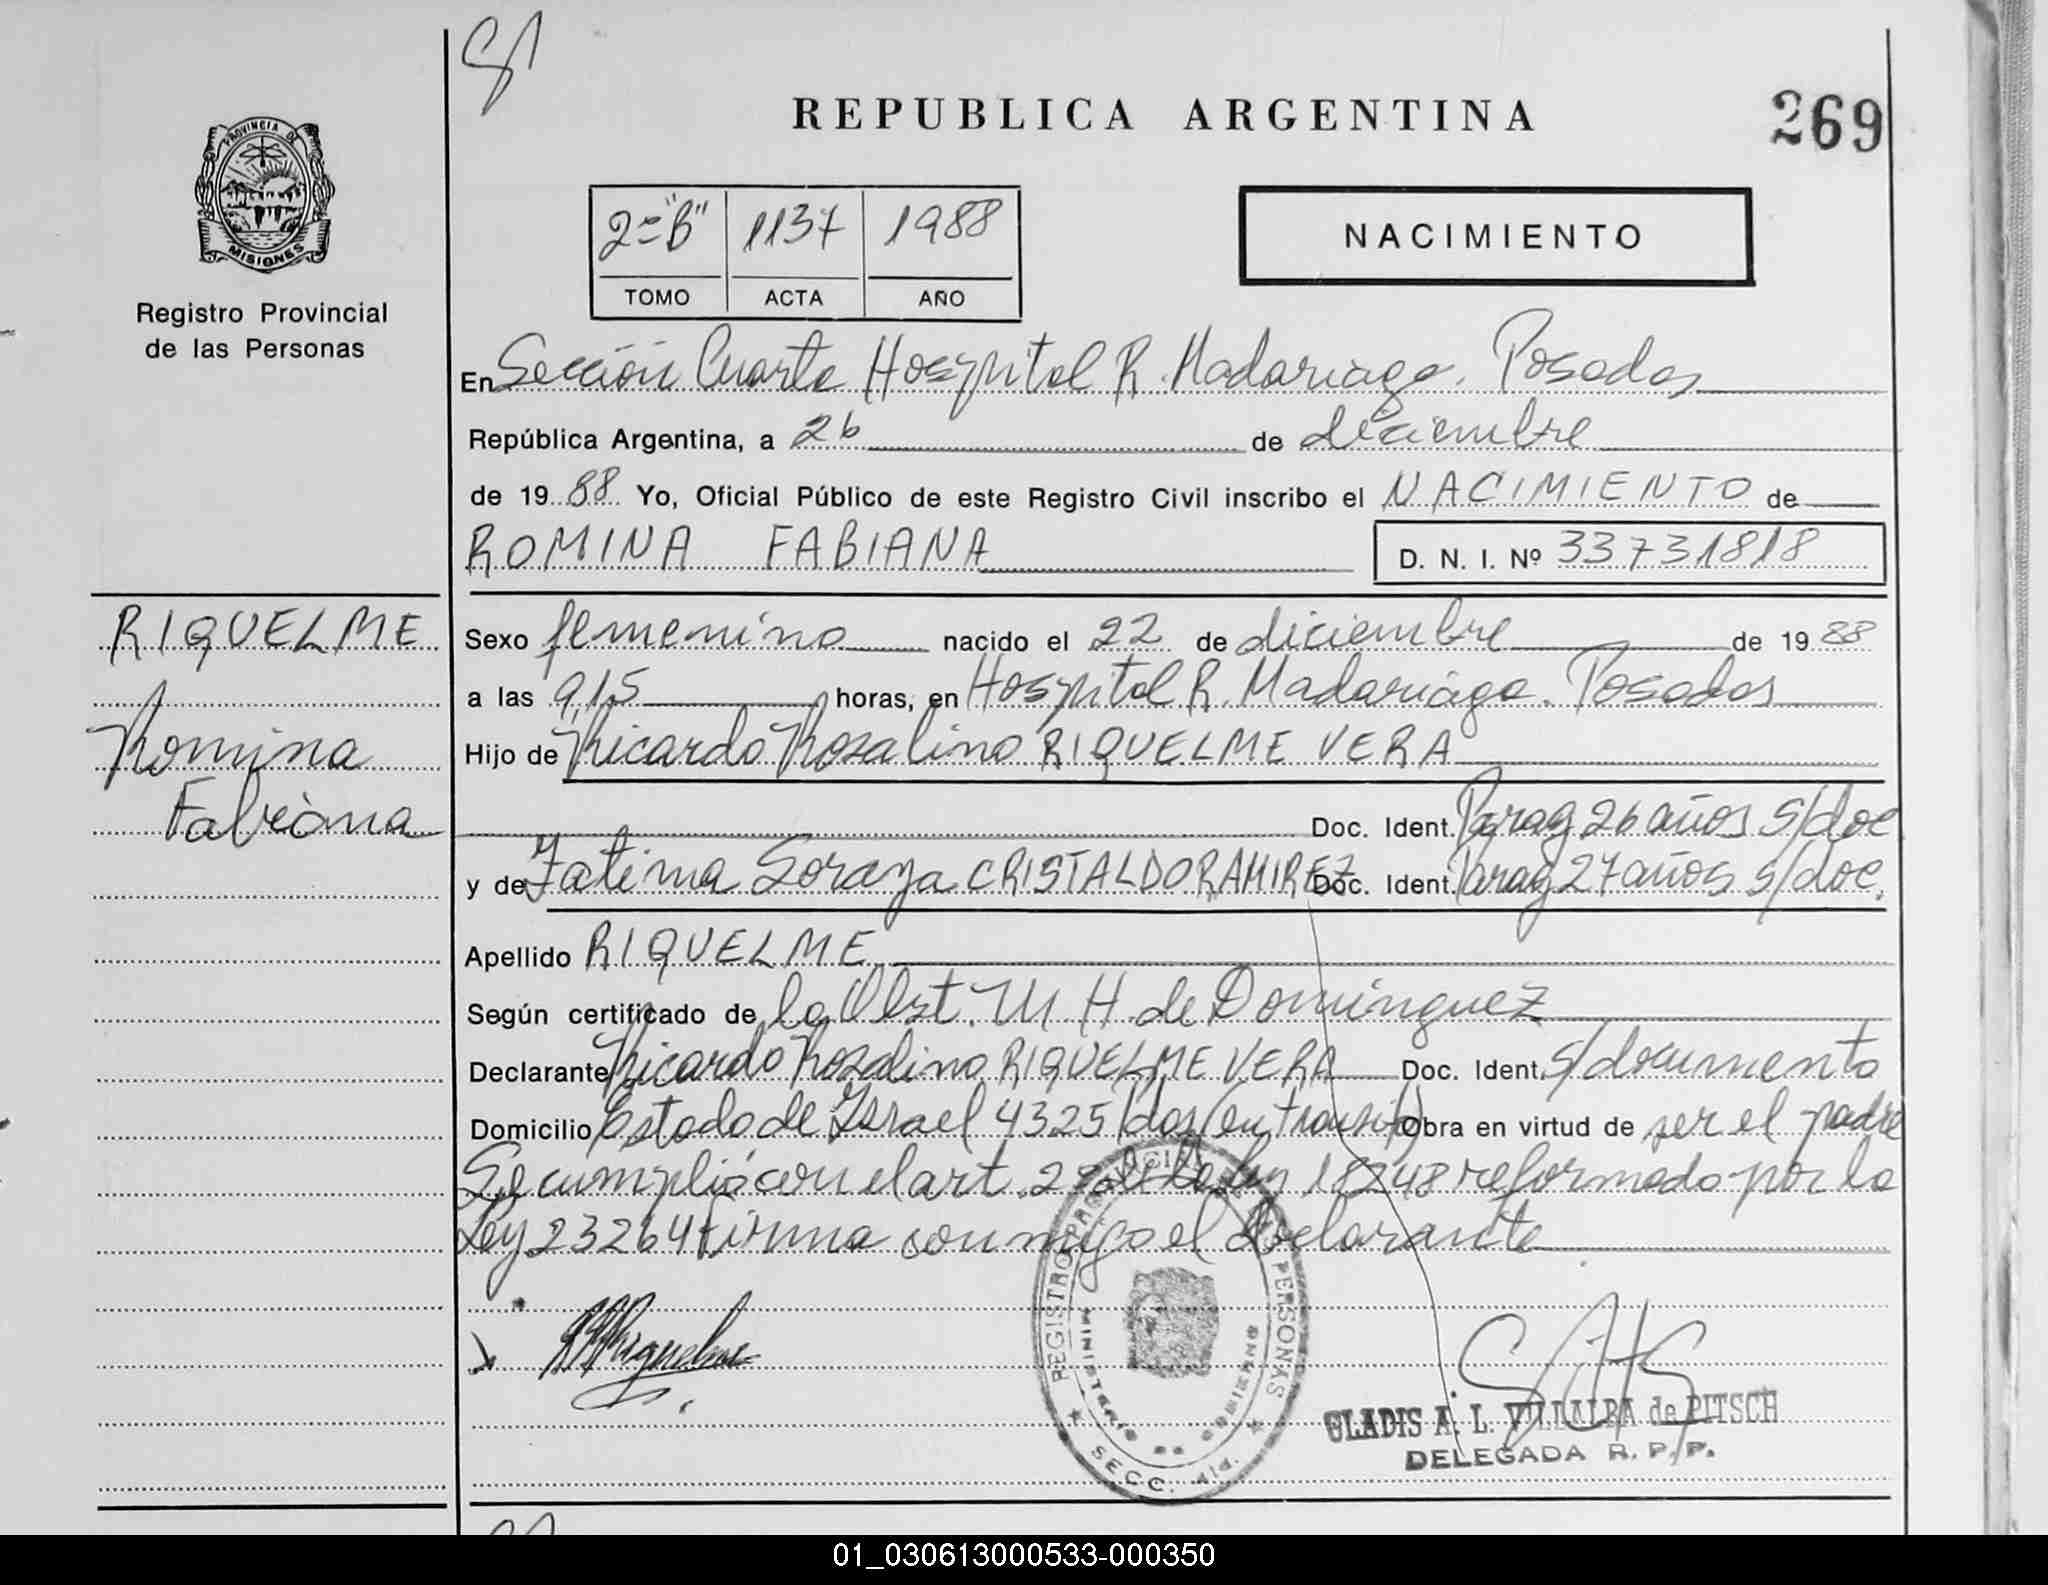 REPUBLICA ARGENTINA
269
PROVINCIA DE
MISIONES
Registro Provincial
de las Personas
2="B" 1137 1988
TOMO ACTA AÑO
NACIMIENTO
En Sección Cuarta Hospital R. Madariaga. Posadas
República Argentina, a 26 de diciembre
de 19 88 Yo, Oficial Público de este Registro Civil inscribo el NACIMIENTO de
ROMINA FABIANA D. N. I. Nº 33731818
RIQUELME
Romina
Fabiana
Sexo femenino nacido el 22 de diciembre de 19 88
a las 9,15 horas, en Hospital R. Madariaga. Posadas
Hijo de Ricardo Rosalino RIQUELME VERA
Doc. Ident. Parag 26 años s/doc
y de Fatima Soraya CRISTALDO RAMIREZ Doc. Ident. Parag 27 años s/doc.
Apellido RIQUELME
Según certificado de la Obst. M H de Dominguez
Declarante Ricardo Rosalino RIQUELME VERA Doc. Ident. s/documento
Domicilio Estado de Israel 4325 Pdas (en transito) Obra en virtud de ser el padre
Se cumplió con el art. 2º de la ley 18248 reformado por la
Ley 23264 firma conmigo el declarante
REGISTRO PROVINCIAL DE LAS PERSONAS
MINISTERIO DE GOBIERNO
SECC. 4ta.
GLADIS A. L. VILLALBA de PITSCH
DELEGADA R. P. P.
01_030613000533-000350